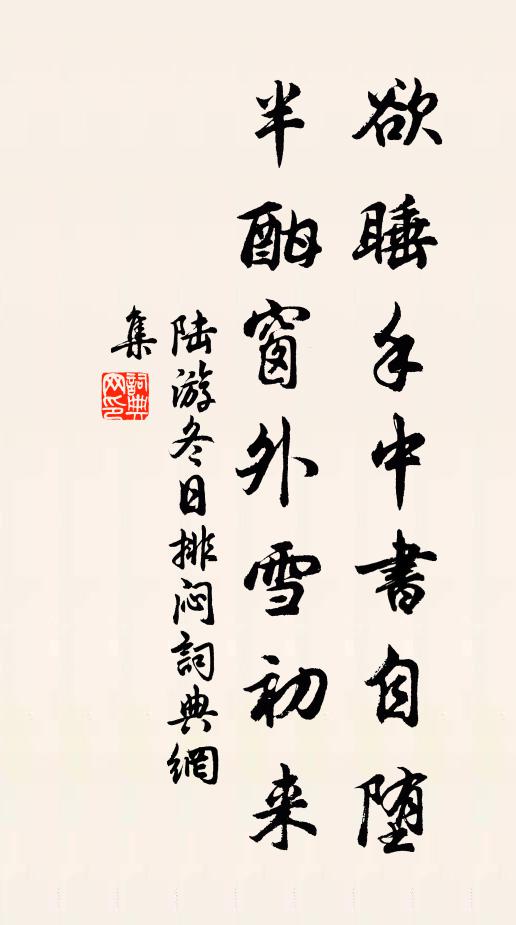 欲睡手中書自堕
半酣窗外雪初来
陆游冬日排闷詞典網
集
詞典
网印